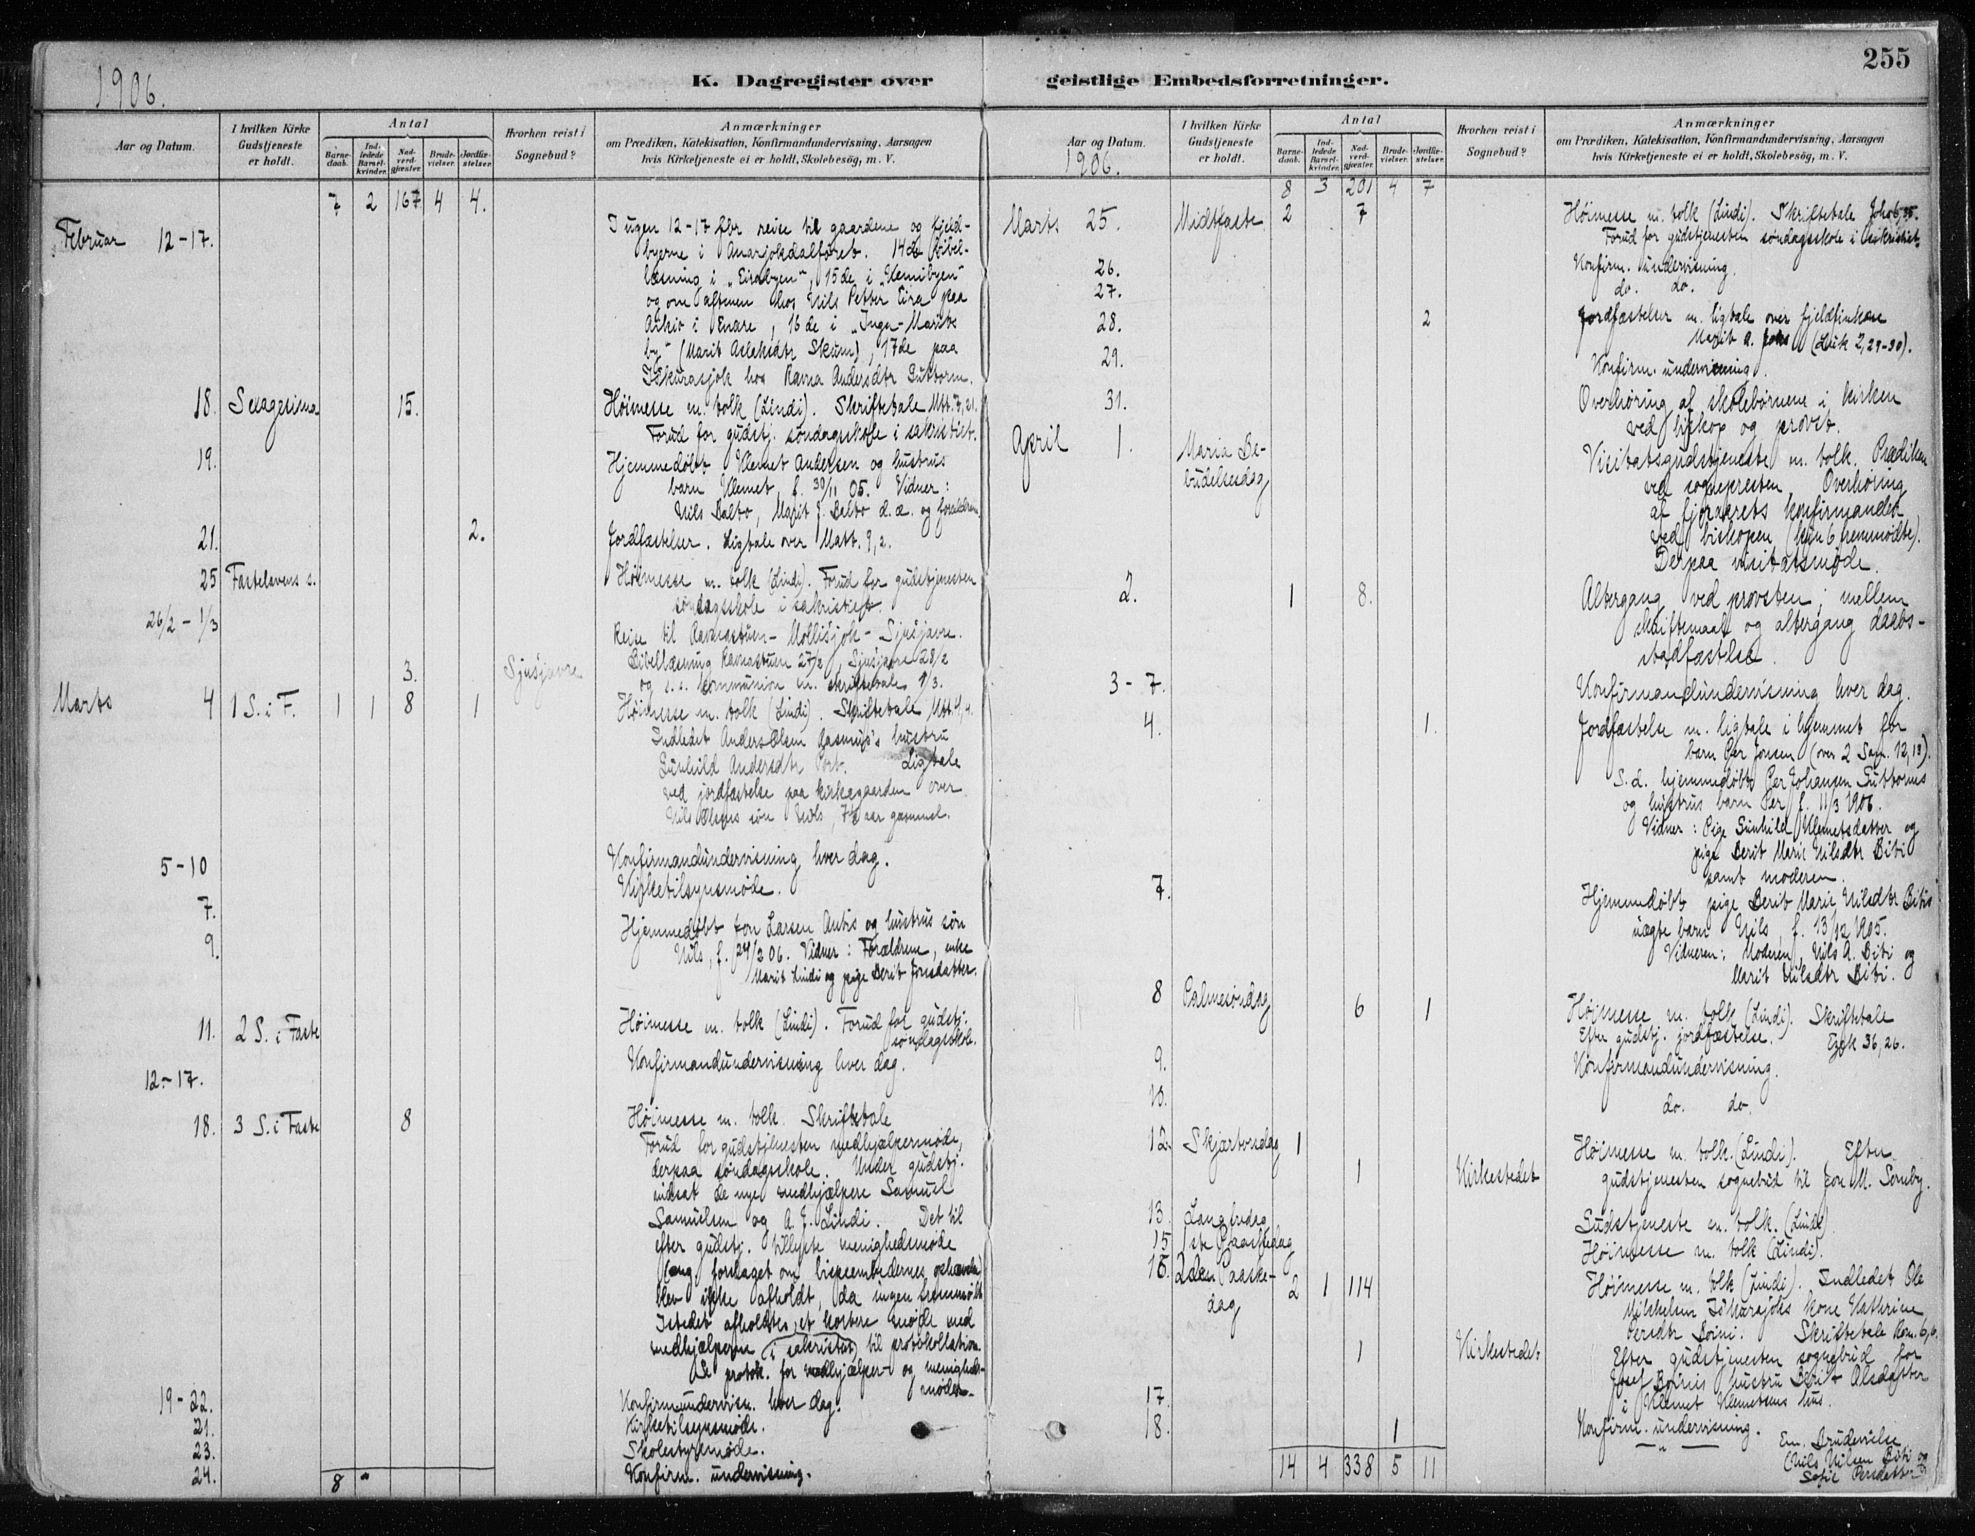 1906.
K. Dagregister over
Aar og Datum.
I hvilken Kirke Gudstjeneste er holdt.
Antal
Barne-daab.
Indledede Barselkvinder.
Nadverdgjæster.
Brudevielser.
Jordfæstelser.
Hvorhen reist i Sognebud?
Anmærkninger
om Prædiken, Katekisation, Konfirmandundervisning, Aarsagen
hvis Kirketjeneste ei er holdt, Skolebesøg, m. V.
7 2 167 4 4.
Februar 12-17. I ugen 12-17 fbr reise til gaardene og fjeld-
byerne i Anarjokdalføret. 14de bibel-
læsning i "Eirabyen", 15de i "Klemibyen"
og om aftenen hos Nils Petter Eira paa
i Enare, 16de i "Inga-Marits
by" (Marit Aslaksdtr Skum), 17de paa
Iskurasjok hos Ravna Andersdtr Guttorm.
18. Sexagesima 15. Høimesse m. tolk (Lindi). Skriftetale Mtt. 7, 21.
Forud for gudstj. søndagsskole i sakristiet.
19. Hjemmedøbt Klemet Andersen og hustrus
barn Klemet, f. 30/11 05. Vidner:
Nils Balto, Marit J. Balto d.æ. og forældrene
21. 2. Jordfæstelser. Ligtale over Matt. 9, 2.
25 Fastelavens s. Høimesse m. tolk (Lindi). Forud for gudstjenesten
søndagsskole i sakristiet.
26/2 - 1/3 Reise til Ravnastuen - Mollisjok - Sjusjavre.
Bibellæsning Ravnastuen 27/2, Sjusjavre 28/2
3. Sjusjavre og s. s. kommunion m. skriftetale 1/3.
Marts 4 1 S. i F. 1 1 8 1 Høimesse m. tolk (Lindi). Skriftetale Mtt. 4, 4.
Indledet Anders Olsen Rasmus's hustru
Gunhild Andersdtr Port. Ligtale
ved jordfæstelse paa kirkegaarden over
Nils Olsens søn Nils, 7½ aar gammel.
5-10 Konfirmandundervisning hver dag.
7. Kirketilsynsmøde.
9. Hjemmedøbt Jon Larsen Antis og hustrus søn
Nils, f. 24/2 06. Vidner: Forældrene, enke
Marit Lindi og pige Berit Jonsdatter.
11. 2 S. i Faste Høimesse m. tolk (Lindi). Forud for gudstj.
søndagsskole.
12-17. Konfirmandundervisning hver dag.
18. 3 S. i Faste 8 Høimesse m. tolk. Skriftetale
Forud for gudstjenesten medhjælpermøde,
derpaa søndagsskole. Under gudstj.
indsat de nye medhjælpere Samuel
Samuelsen og A. J. Lindi. Det til
efter gudstj. tillyste menighedsmøde
(ang. forslaget om bispeembedernes ophævelse)
blev ikke afholdt, da ingen fremmødte.
Istedet afholdtes et kortere møde med
medhjælperne (i sakristiet) til protokollation.
Se protok. for medhjælper- og menigheds-
møder.
19-22. Konfirmundervisn. hver dag.
21. Kirketilsynsmøde.
23. Skolestyrsmøde.
24. Konfirm. undervisning.
8 "
255
geistlige Embedsforretninger.
Aar og Datum.
1906.
I hvilken Kirke Gudstjeneste er holdt.
Antal
Barne-daab.
Indledede Barselkvinder.
Nadverdgjæster.
Brudevielser.
Jordfæstelser.
Hvorhen reist i Sognebud?
Anmærkninger
om Prædiken, Katekisation, Konfirmandundervisning, Aarsagen
hvis Kirketjeneste ei er holdt, Skolebesøg, m. V.
8 3 201 4 7
Marts 25. Midtfaste 2 7 Høimesse m. tolk (Lindi). Skriftetale Joh. 6, 35.
Forud for gudstjenesten søndagsskole i sakristiet.
26. Konfirm. undervisning.
27. do. do.
28. 2 Jordfæstelser m. ligtale over fjeldfinkone
Marit A. (Luk 2, 29-30).
29. Konfirm. undervisning.
31. Overhøring af skolebørnene i kirken
ved biskop og provst.
April 1. Maria Be-
budelsesdag Visitatsgudstjeneste m. tolk. Prædiken
ved sognepresten. Overhøring
af fjoraarets konfirmander
ved biskopen (kun 6 fremmødte).
Derpaa visitatsmøde.
2. 1 8. Altergang ved provsten; mellem
skriftemaal og altergang daabs-
stadfæstelse.
3-7. Konfirmandundervisning hver dag.
4. 1. Jordfæstelse m. ligtale i hjemmet for
barn Per Jonsen (over 2 Sam. 12, 18).
S. d. hjemmedøbt Per Johansen Guttorms
og hustrus barn Per f. 11/3 1906.
Vidner: Pige Gunhild Klemetsdatter og
pige Berit Marie Nilsdtr Biti
samt moderen.
7. Hjemmedøbt pige Berit Marie Nilsdtr Bitis
uægte barn Nils, f. 13/12 1905.
Vidnerne: Moderen, Nils A. Biti og
Marit Nilsdtr Biti.
8 Palmesøndag 6 1 Høimesse m. tolk (Lindi). Skriftetale
Efter gudstj. jordfæstelse. Ezek 36, 26.
9. Konfirmandundervisning.
10. do. do.
12. Skjærtorsdag 1 Høimesse m. tolk. (Lindi). Efter
1 Kirkestedet gudstjenesten sognebud til Jon M. Somby.
13. Langfredag Gudstjeneste m. tolk. (Lindi)
15 1ste Paaskedag Høimesse m. tolk (Lindi).
16. 2den Paaske-
dag 2 1 114 Høimesse m. tolk (Lindi). Indledet Ole
Mikkelsen Iskurasjoks kone Kathrine
Persdtr Boini. Skriftetale Rom. 6, 6.
1 Kirkestedet: Efter gudstjenesten sognebud for
Josef Boinis hustru Berit Olsdatter
i Klemet Klemetsens hus.
17. Konfirm. undervisning.
18. 1 — " — En Brudevielse
(Nils Nilsen Biti og
Sofie Persdatt.)
14 4 338 5 11